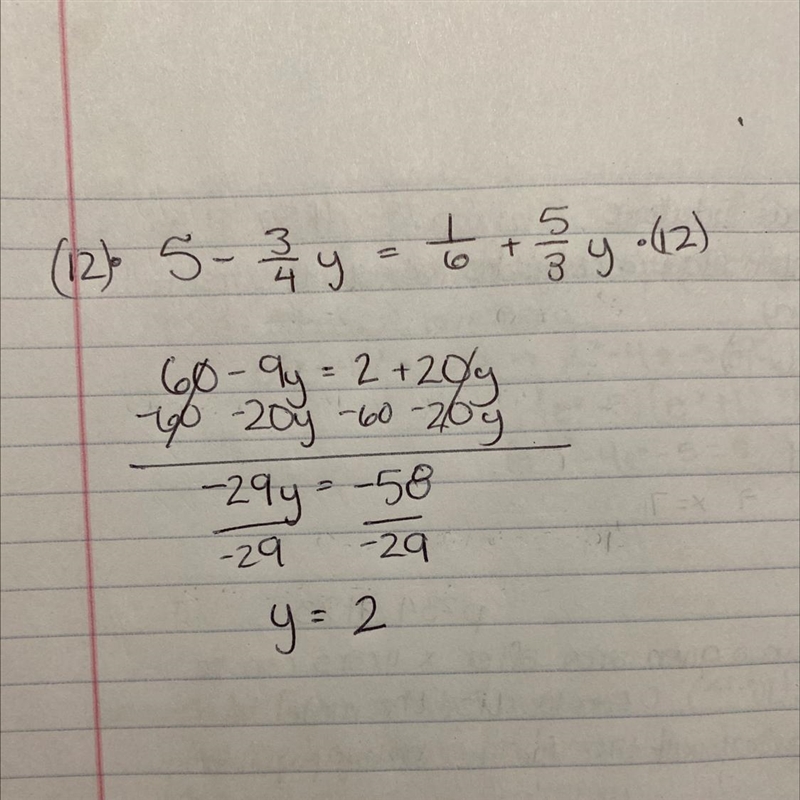 (12)· 5 - 3/4 y = 1/6 + 5/3 y ·(12)
60 - 9y = 2 + 20y
-60 -20y -60 -20y
-29y = -58
-29 -29
y = 2